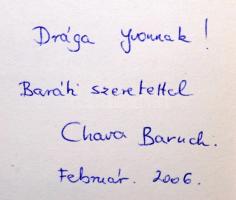 Drága Yvonnak!
Baráti szeretettel
Chava Baruch.
Február. 2006.